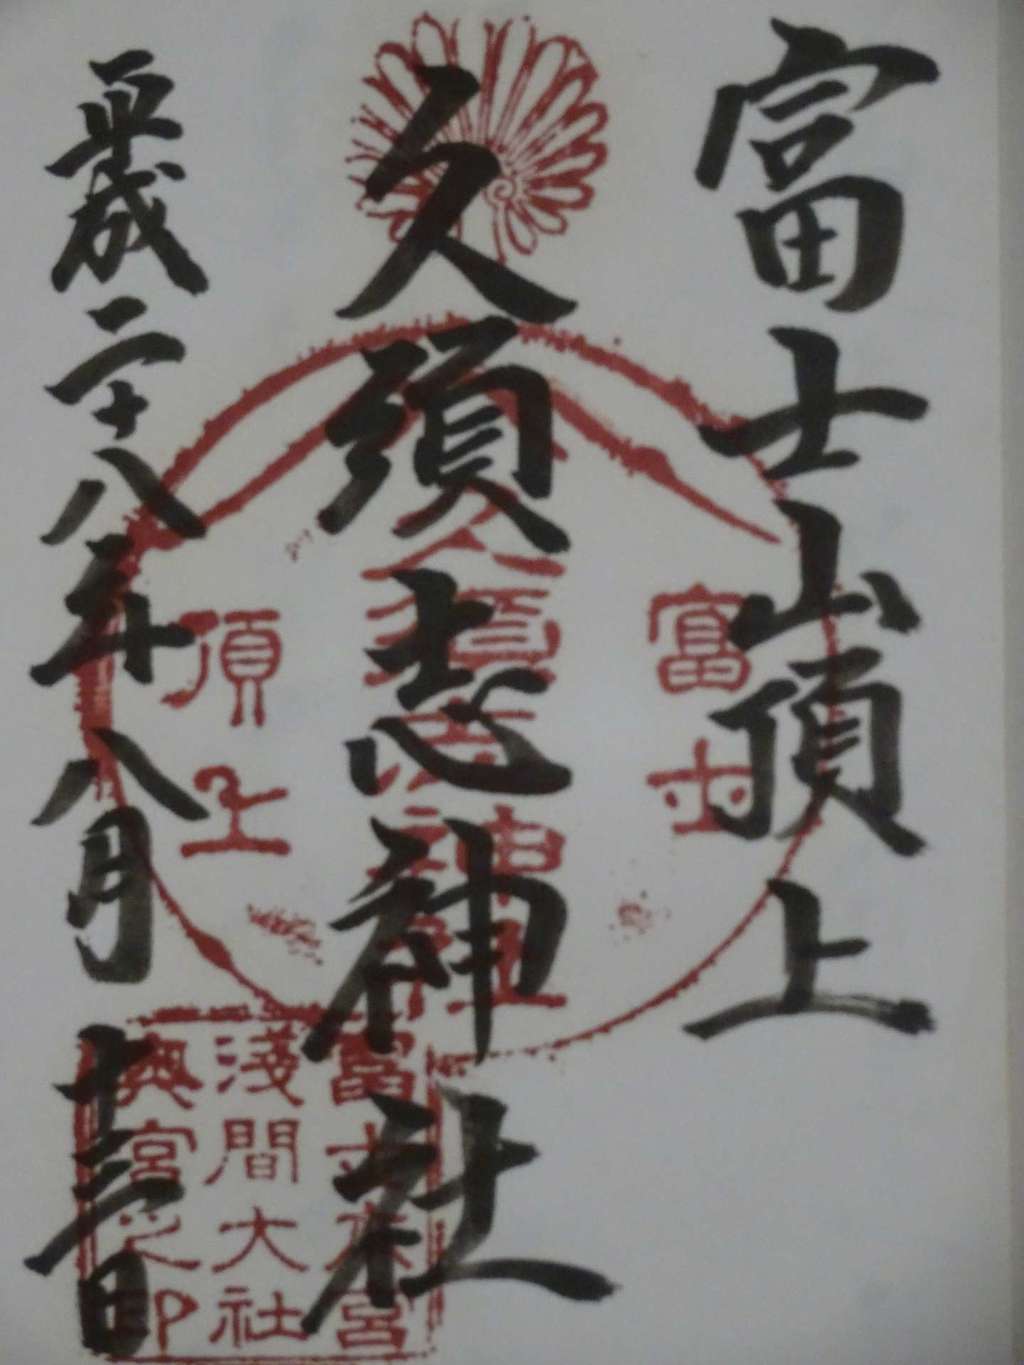 富士山頂上
久須志神社
平成二十八年八月十三日
富士
久須志神社
頂上
富士本宮
淺間大社
奥宮之印